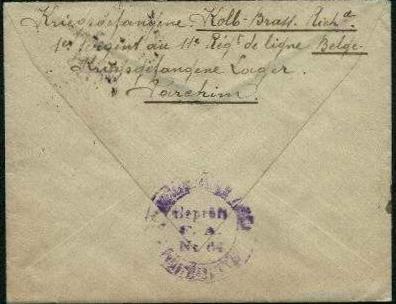 Kriegsgefangene Kolb-Brass. Rich<sup>d</sup>.
1er Sergent au 11e Régt de ligne Belge.
Kriegsgefangene Lager.
Parchim.
Geprüft
F. A.